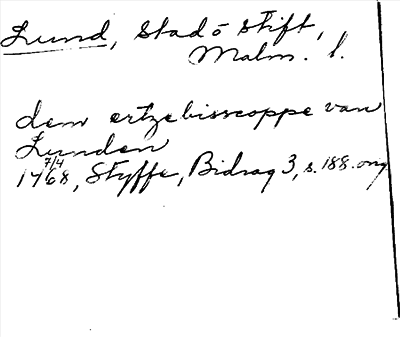 Lund, Stad o Stift,
Malm. l.
dem ertzebisscoppe van
Lunden
7/4
1468, Styffe, Bidrag 3, s. 188. org